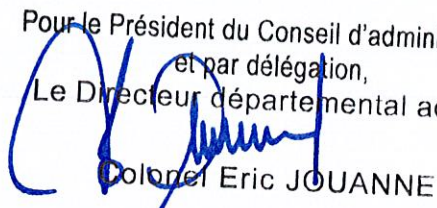 Pour le Président du Conseil d'admin
et par délégation,
Le Directeur départemental a
Colonel Eric JOUANNE